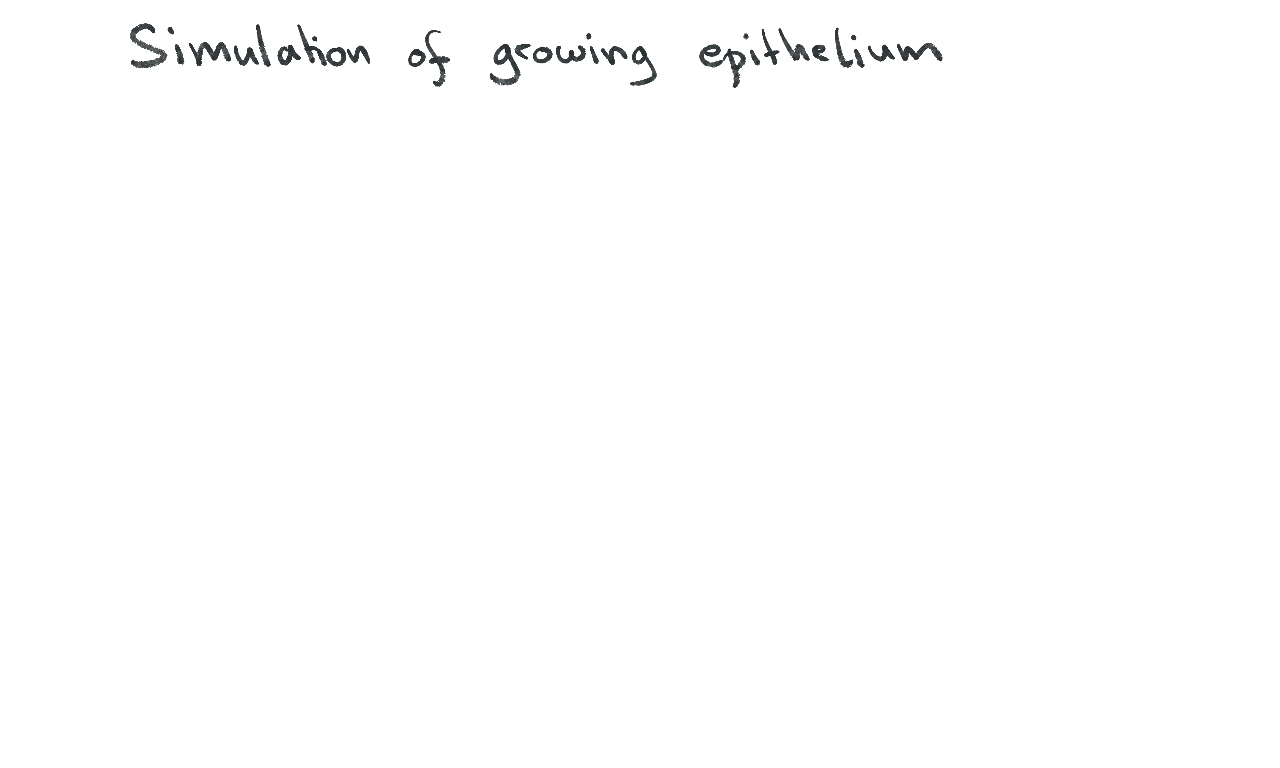 Simulation of growing epithelium